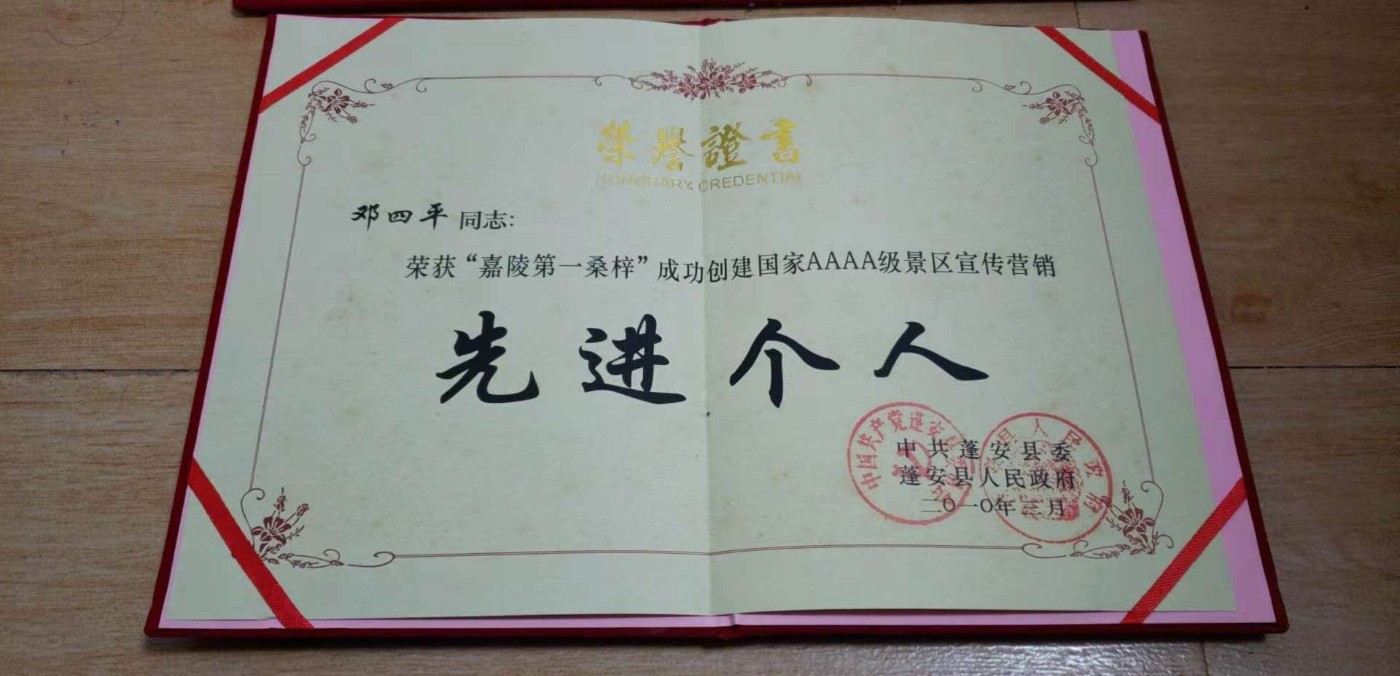 榮譽證書
HONORARY CREDENTIAL
邓四平同志：
荣获“嘉陵第一桑梓”成功创建国家AAAA级景区宣传营销
先进个人
中共蓬安县委
蓬安县人民政府
二〇一〇年三月
中国共产党蓬安
县人民政府